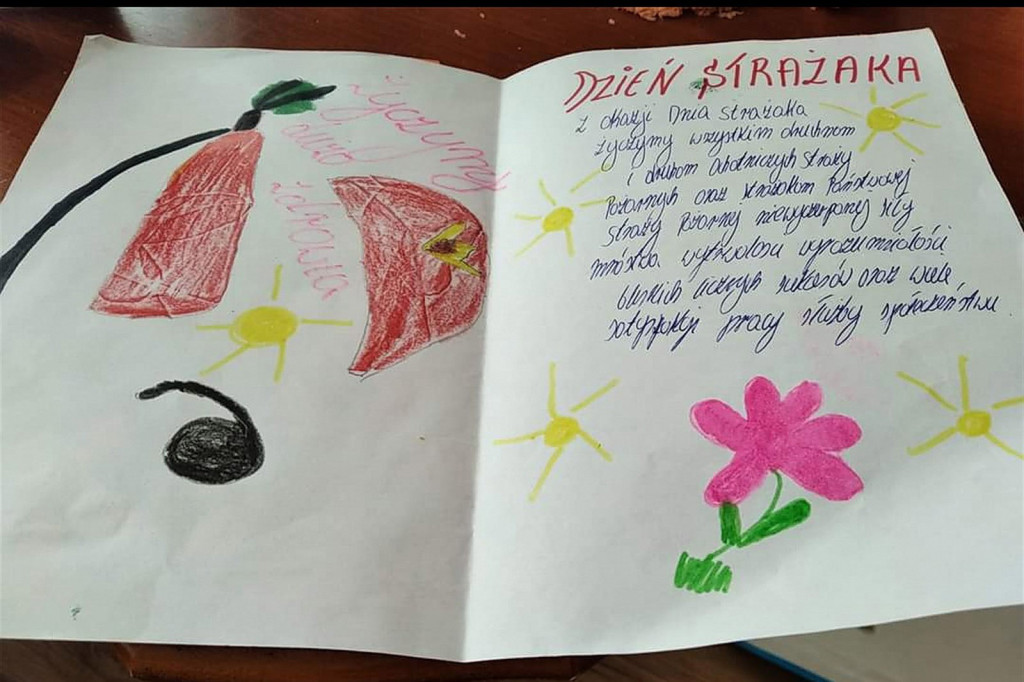 Życzymy
dużo
Zdrowia
DZIEŃ STRAŻAKA
Z okazji Dnia strażaka
życzymy wszystkim druhnom
i druhom Ochotniczych Straży
Pożarnych oraz strażakom Państwowej
Straży Pożarnej niewyczerpanej siły
mnóstwa wytrwałości wyrozumiałości
bliskich licznych sukcesów oraz wiele
satysfakcji pracy służby społeczeństwu.